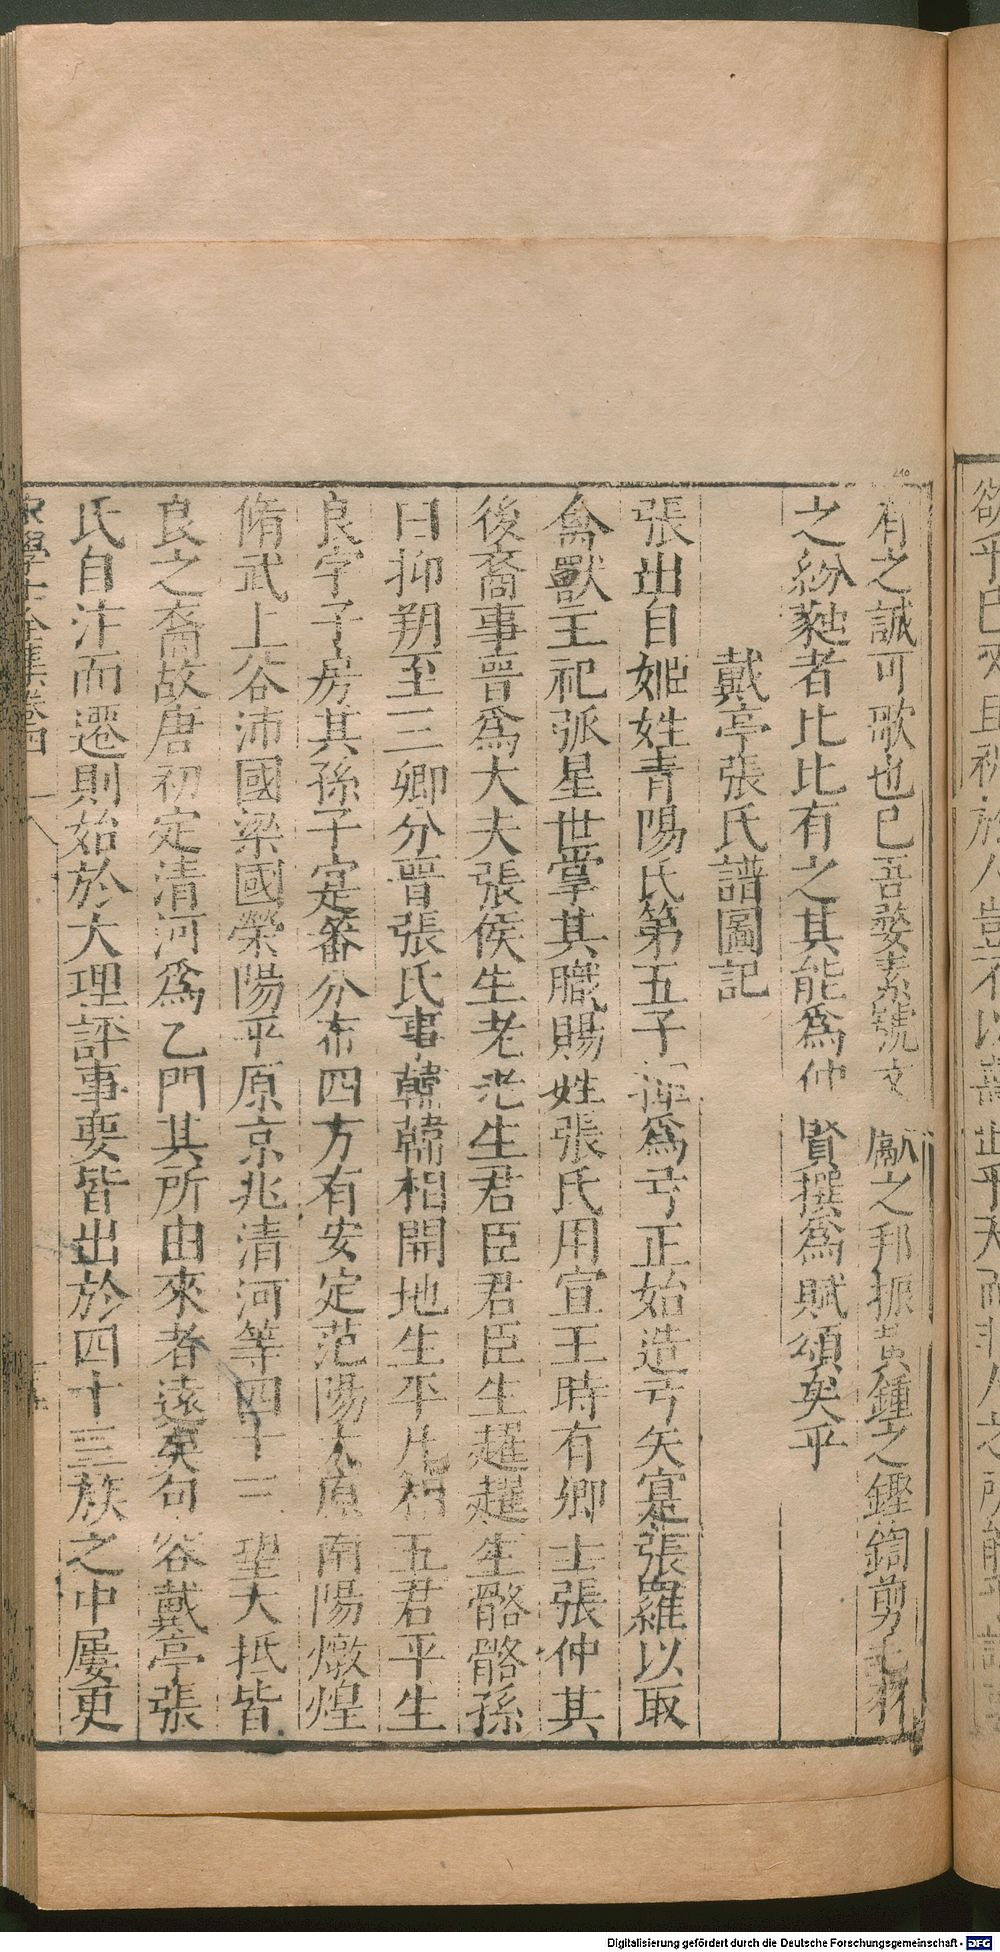 有之誠可歌也已吾婺素號文獻之邦振黃鍾之鏗鍧剪
之紛
者比比有之其能爲仲賢撰爲賦頌矣乎
戴亭張氏譜圖記
張出自姬姓青陽氏第五子揮爲弓正始造弓矢寔張羅以取
禽獸主祀弧星世掌其職賜姓張氏用宣王時有卿士張仲其
後裔事晉爲大夫張侯生老老生君臣君臣生趯趯生骼骼孫
曰抑朔至三卿分晉張氏事韓韓相開地生平凡相五君平生
良字子房其孫子寔籓分布四方有安定范陽太原南陽燉煌
脩武上谷沛國梁國滎陽平原京兆清河等四十一望大抵皆
良之裔故唐初定清河爲乙門其所由來者遠矣句容戴亭張
氏自汴而遷則始於大理評事要皆出於四十三族之中屢更
宋學士全集卷四
Digitalisierung gefördert durch die Deutsche Forschungsgemeinschaft - DFG